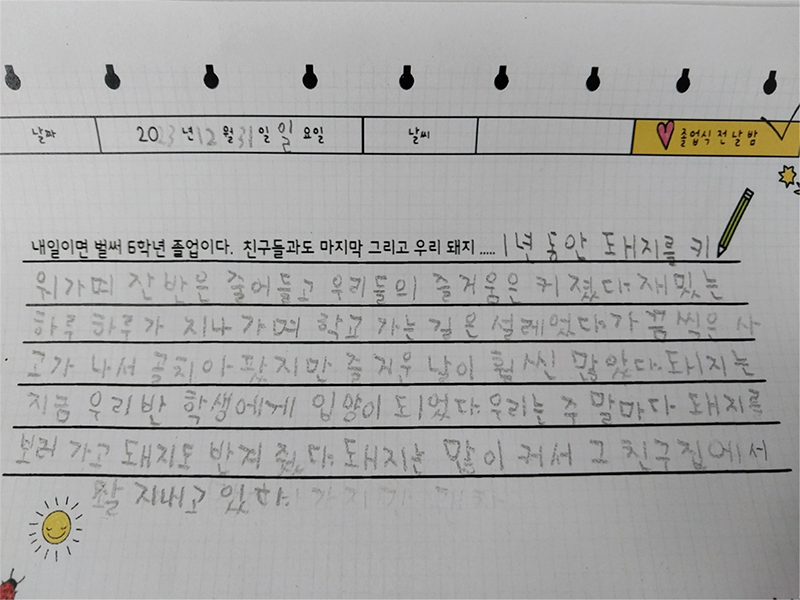 날짜 2023년 12월 31일 일요일 날씨 졸업식 전날 밤
내일이면 벌써 6학년 졸업이다. 친구들과도 마지막 그리고 우리 돼지 ..... 1년 동안 돼지를 키
워가며 잔반은 줄어들고 우리들의 즐거움은 커졌다. 재밌는
하루 하루가 지나가며 학교 가는 길은 설레었다. 가끔씩은 사
고가 나서 골치 아팠지만 즐거운 날이 훨씬 많았다. 돼지는
지금 우리반 학생에게 입양이 되었다. 우리는 주말마다 돼지를
보러 가고 돼지도 반겨 줬다. 돼지는 많이 커서 그 친구집에서
잘 지내고 있다.